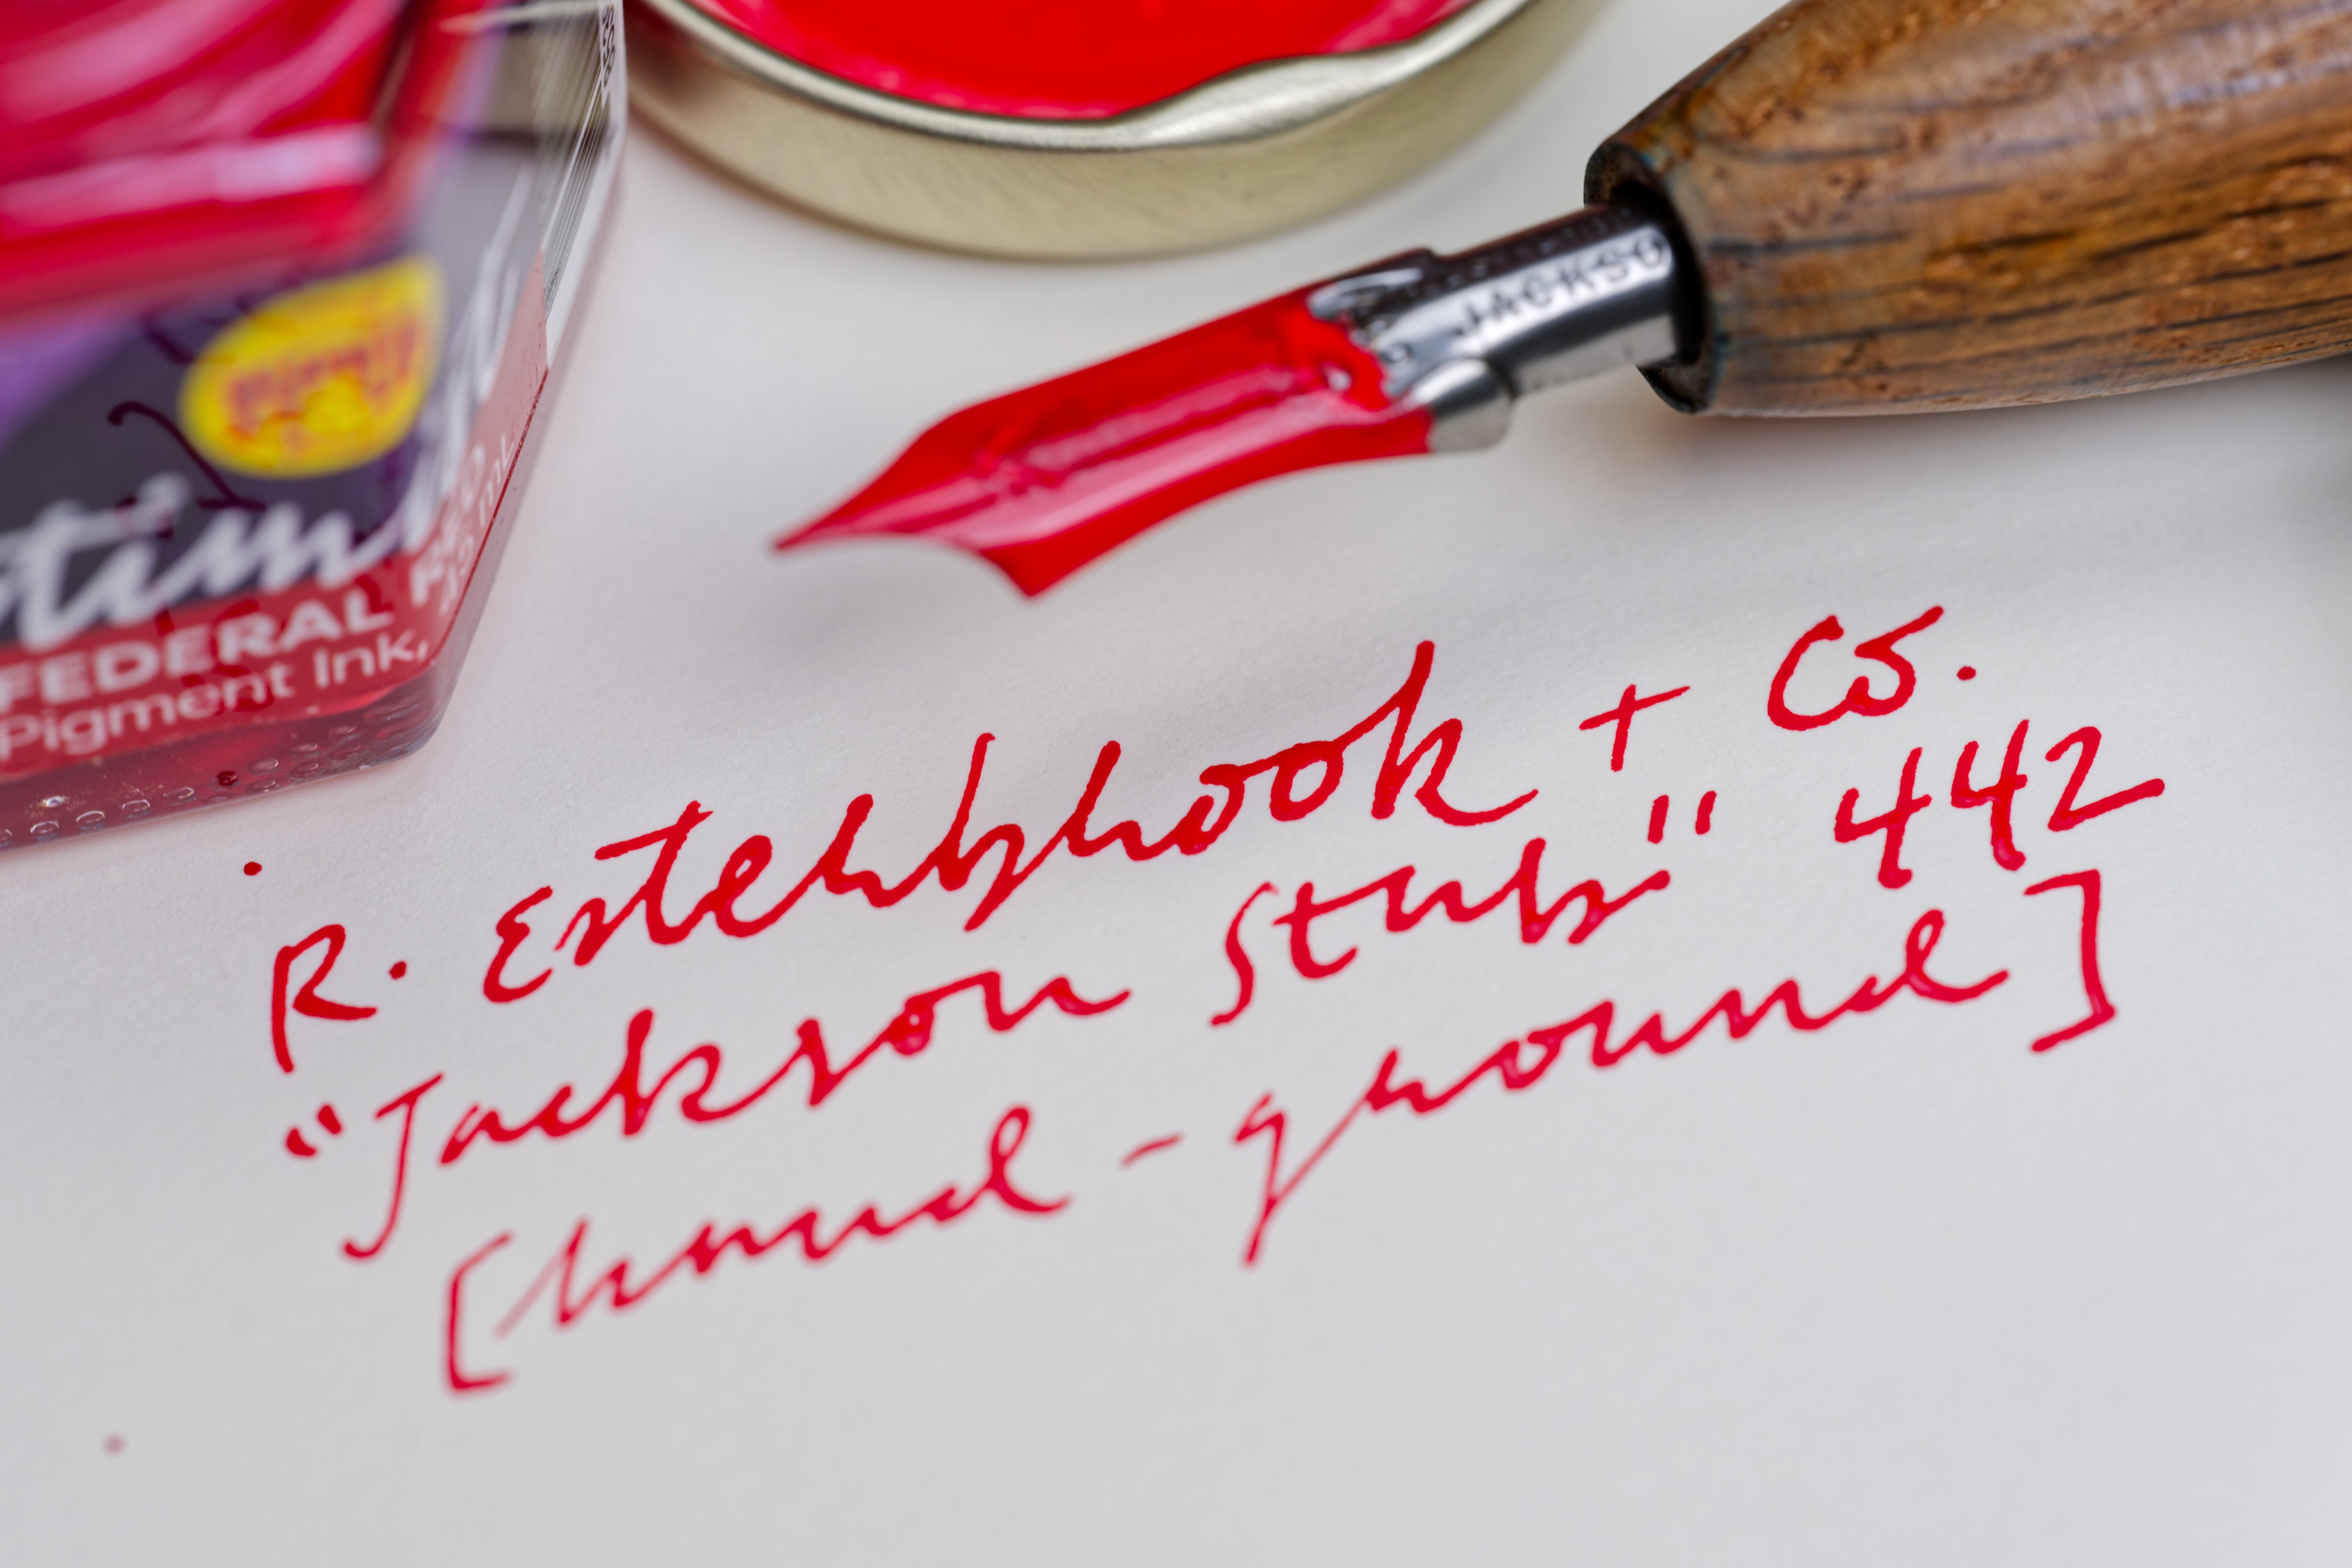 FEDERAL
Pigment Ink,
49 mL
JACKSO
R. Esterbrook + Co.
"Jackson Stub" 442
[hand-ground]